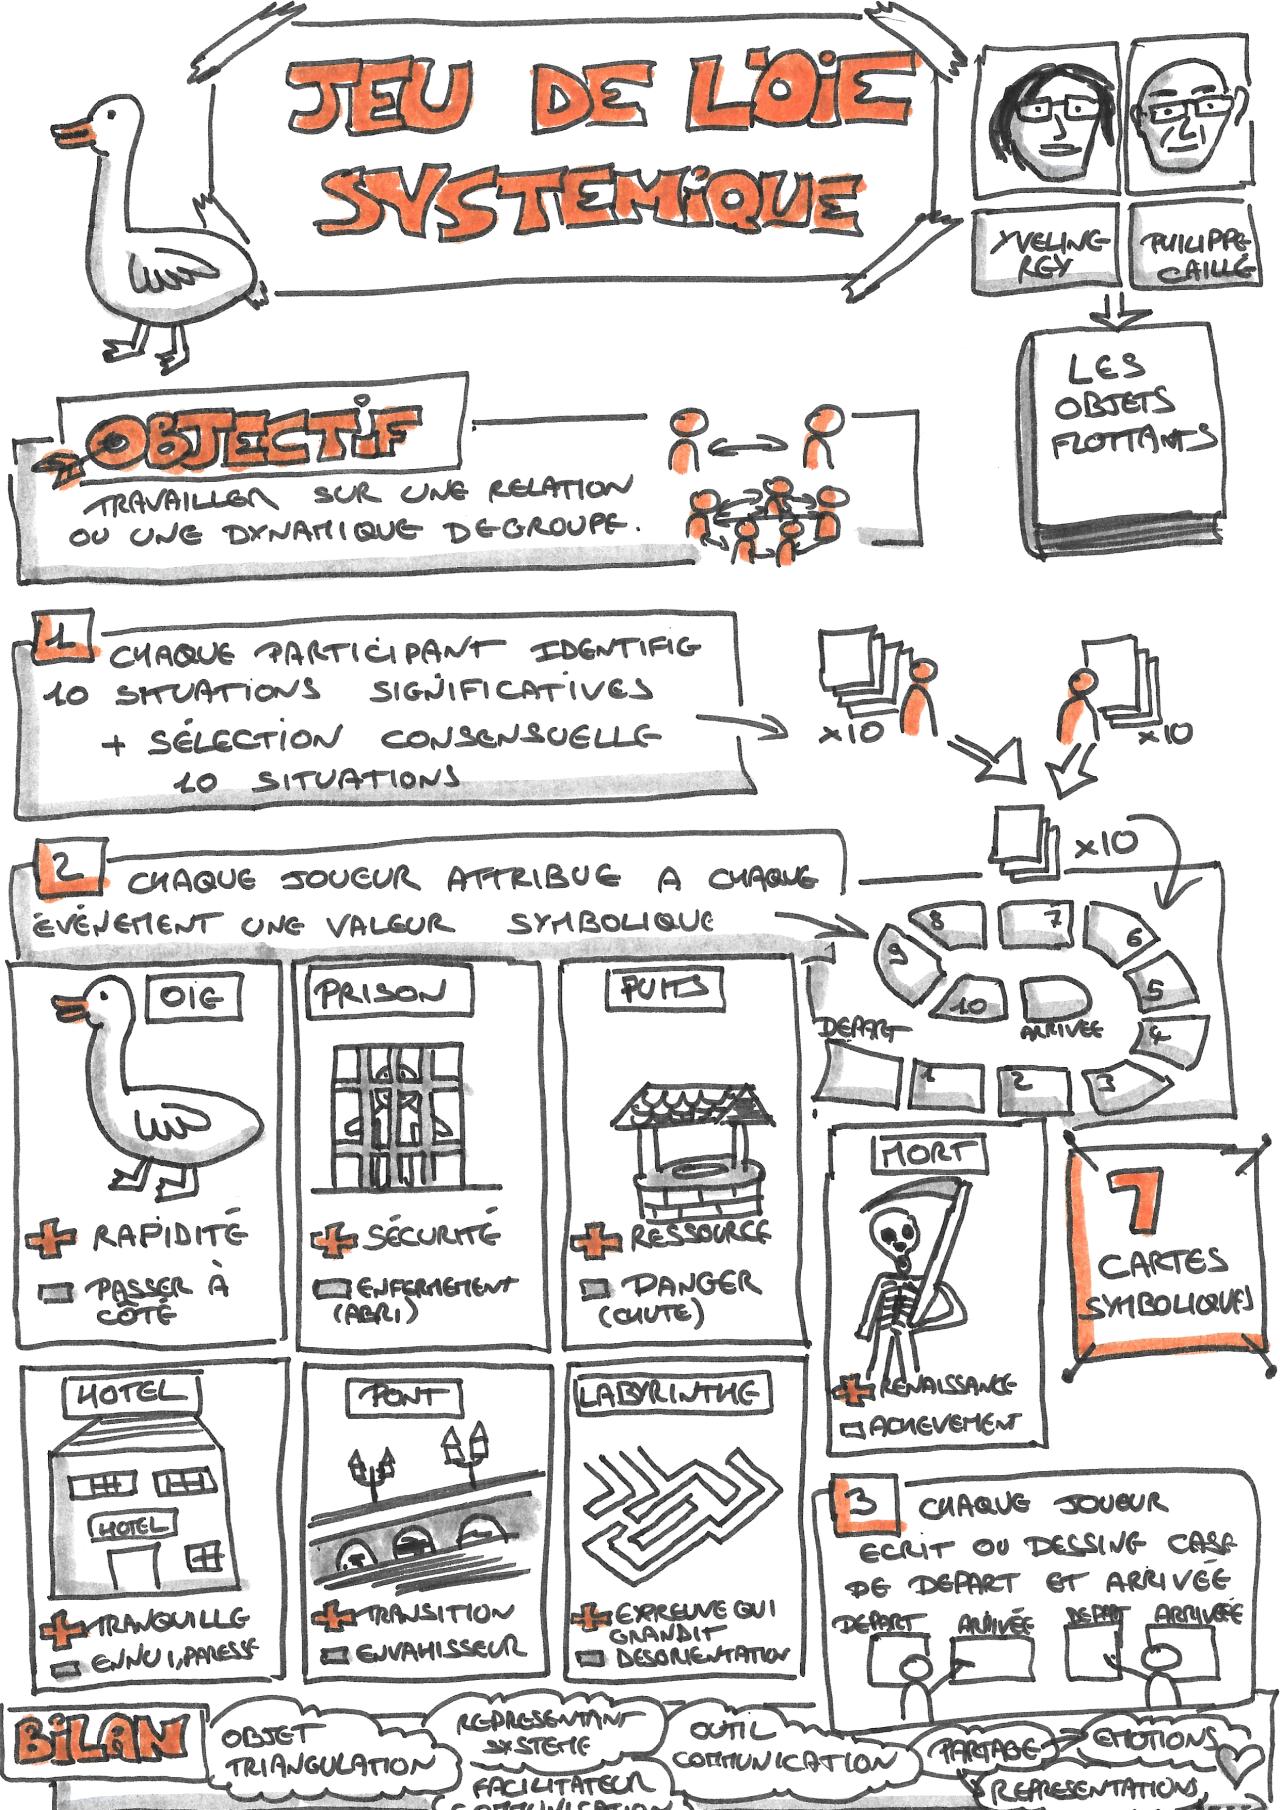 JEU DE L'OIE
SYSTEMIQUE
YVELINE
REY
PHILIPPE
CAILLÉ
LES
OBJETS
FLOTTANTS
OBJECTIF
TRAVAILLER SUR UNE RELATION
OU UNE DYNAMIQUE DE GROUPE.
1
CHAQUE PARTICIPANT IDENTIFIE
10 SITUATIONS SIGNIFICATIVES
+ SÉLECTION CONSENSUELLE
10 SITUATIONS
x10
x10
x10
2
CHAQUE JOUEUR ATTRIBUE A CHAQUE
ÉVÉNEMENT UNE VALEUR SYMBOLIQUE
8
7
6
9
5
10
4
DEPART
ARRIVÉE
1
2
3
OIE
+ RAPIDITÉ
- PASSER À
CÔTÉ
PRISON
+ SÉCURITÉ
- ENFERMEMENT
(ABRI)
PUITS
+ RESSOURCE
- DANGER
(CHUTE)
MORT
+ RENAISSANCE
- ACHEVEMENT
7
CARTES
SYMBOLIQUES
HOTEL
HOTEL
+ TRANQUILLE
- ENNUI, PARESSE
PONT
+ TRANSITION
- ENVAHISSEUR
LABYRINTHE
+ EXPREUVE QUI
GRANDIT
- DESORIENTATION
3
CHAQUE JOUEUR
ECRIT OU DESSINE CASE
DE DEPART ET ARRIVÉE
DEPART
ARRIVÉE
DEPART
ARRIVÉE
BILAN
OBJET
TRIANGULATION
REPRESENTANT
SYSTEME
FACILITATEUR
COMMUNICATION
OUTIL
COMMUNICATION
PARTAGE
EMOTIONS
REPRESENTATIONS